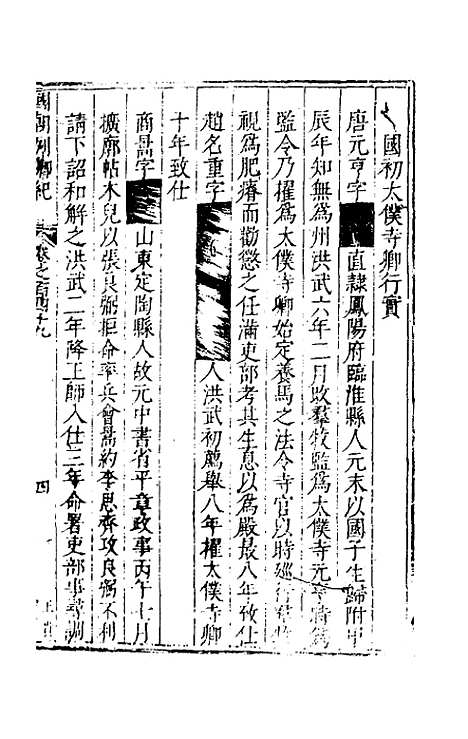 國初太僕寺卿行實
唐元亨字 直隸鳳陽府臨淮縣人元末以國子生歸附甲
辰年知無為州洪武六年二月改羣牧監為太僕寺元亨時為
監令乃擢為太僕寺卿始定養馬之法令寺官以時巡行
視為肥瘠而勸懲之任滿吏部考其生息以為殿最八年致仕
趙名重字 人洪武初薦舉八年擢太僕寺卿
十年致仕
商暠字 山東定陶縣人故元中書省平章政事丙午十月
擴廓帖木兒以張良弼拒命率兵會暠約李思齊攻良弼不利
請下詔和解之洪武二年降王師入仕三年命署吏部事尋調
國朝列卿紀 卷之百四十九 四